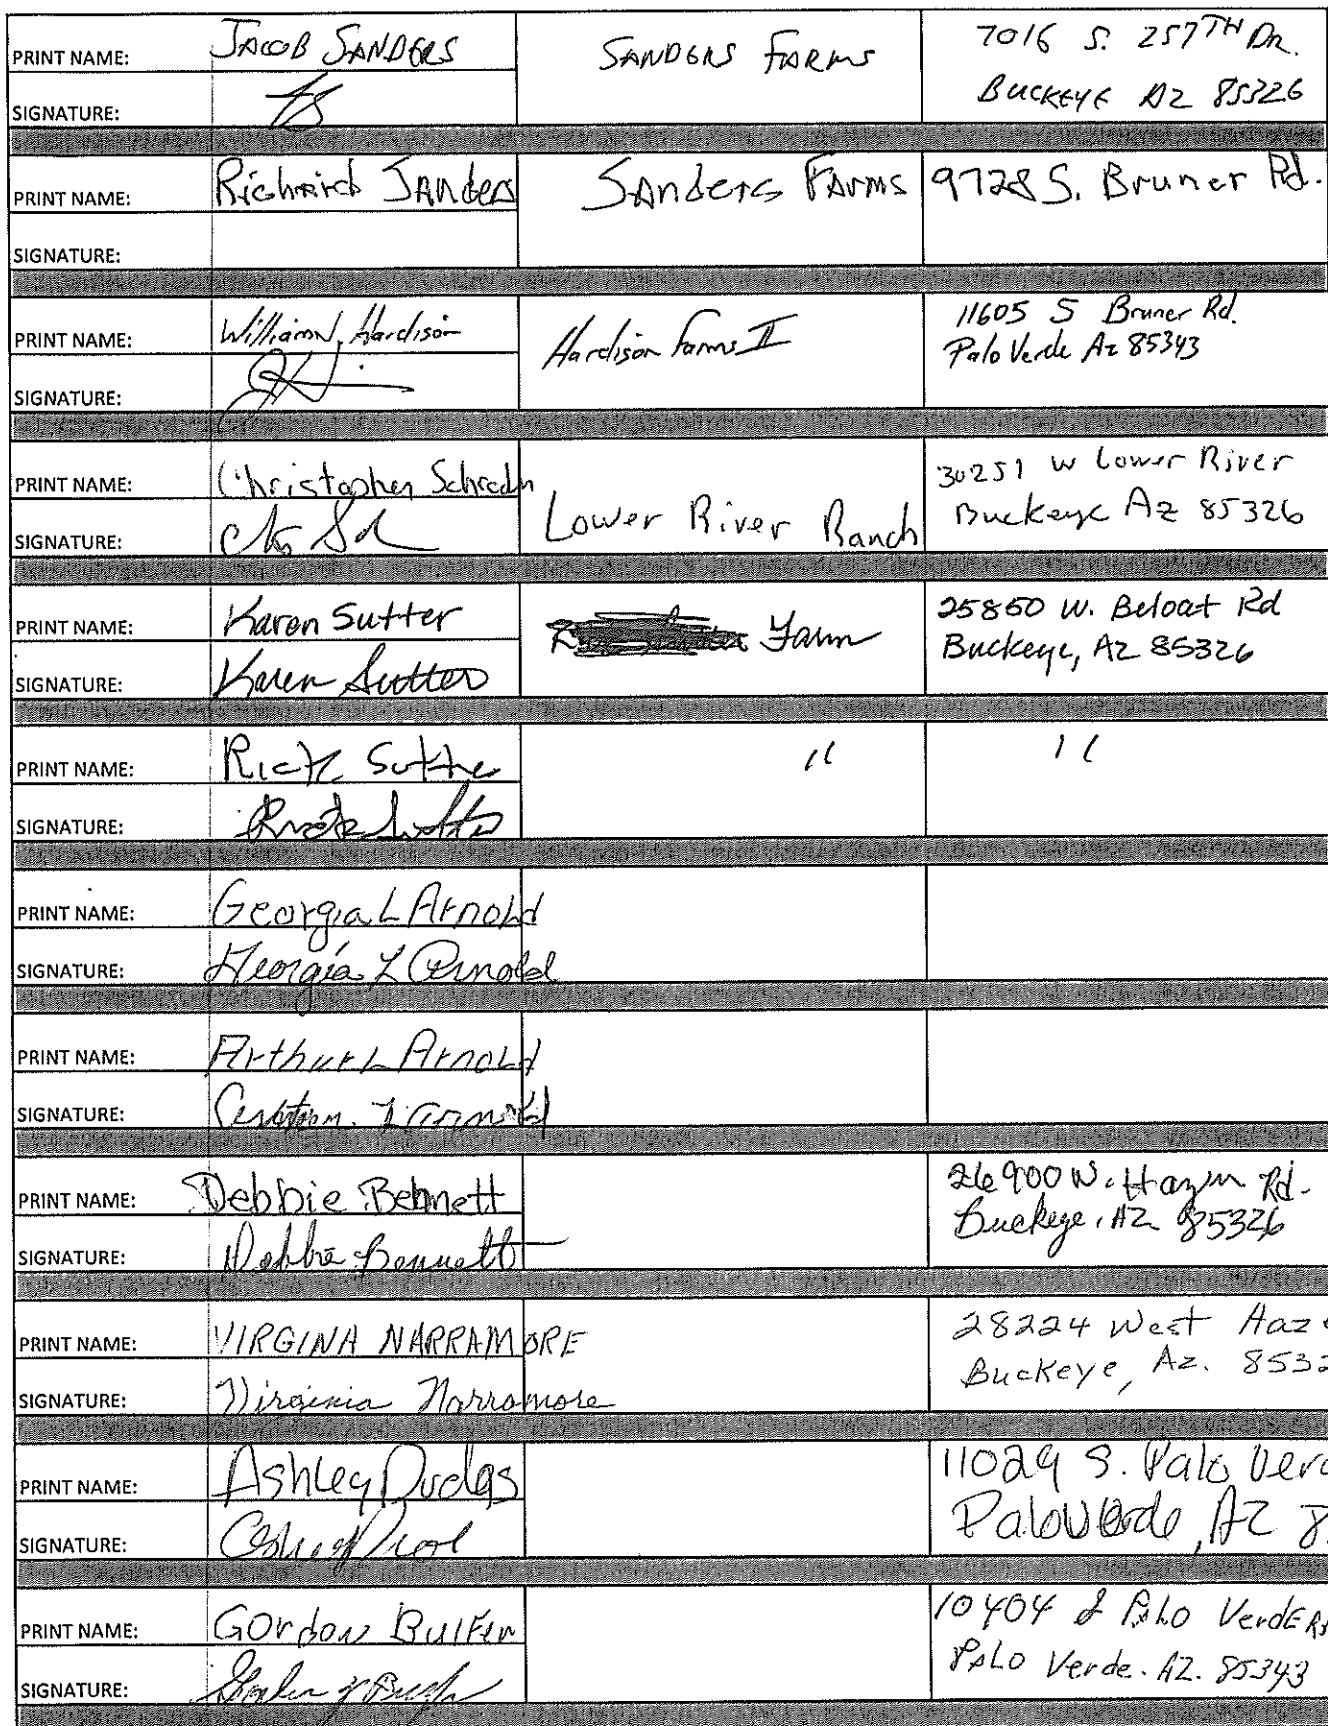 PRINT NAME: JACOB SANDERS SANDERS FARMS 7016 S. 257TH DR.
SIGNATURE: BUCKEYE AZ 85326
PRINT NAME: Richard SANders SANders FArms 9728 S. Bruner Rd.
SIGNATURE:
PRINT NAME: William Hardison Hardison Farms II 11605 S Bruner Rd.
Palo Verde Az 85343
SIGNATURE:
PRINT NAME: Christopher 30251 W Lower River
SIGNATURE: Lower River Ranch Buckeye Az 85326
PRINT NAME: Karen Sutter Farm 25850 W. Beloat Rd
Buckeye, AZ 85326
SIGNATURE: Karen Sutter
PRINT NAME: Rick Sutter " "
SIGNATURE: Rick Sutter
PRINT NAME: Georgia L Arnold
SIGNATURE: Georgia L Arnold
PRINT NAME: Arthur L Arnold
SIGNATURE: Arnold
PRINT NAME: Debbie Bennett 26900 W. Hazen Rd.
Buckeye, AZ 85326
SIGNATURE: Debbie Bennett
PRINT NAME: VIRGINA NARRAMORE 28224 West Haz
Buckeye, Az. 8532
SIGNATURE: Virginia Narramore
PRINT NAME: Ashley 11029 S. Palo Verd
SIGNATURE: Palo Verde, AZ 8
PRINT NAME: GOrdon 10404 S PALO VerdE Rd
SIGNATURE: PALO Verde. AZ. 85343